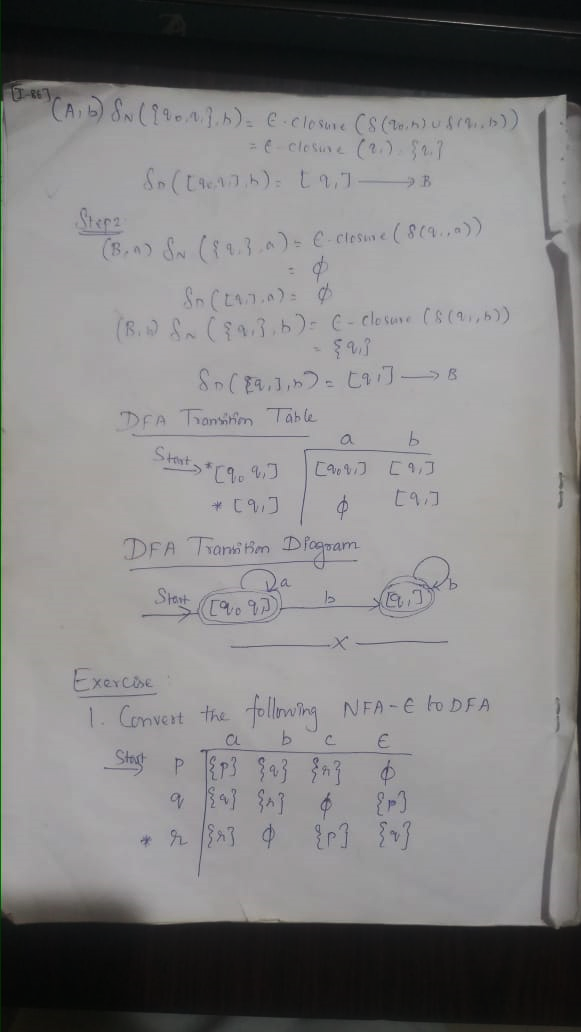 [I-BE]
(A,b) δN({q0,q1},b) = ϵ-closure (δ(q0,b) ∪ δ(q1,b))
= ϵ-closure (q1) = {q1}
δD([q0,q1],b) = [q1] → B
Step2:
(B,a) δN ({q1},a) = ϵ-closure (δ(q1,a))
= ϕ
δD([q1],a) = ϕ
(B,b) δN ({q1},b) = ϵ-closure (δ(q1,b))
= {q1}
δD([q1],b) = [q1] → B
DFA Transition Table
a b
Start → *[q0 q1] [q0 q1] [q1]
* [q1] ϕ [q1]
DFA Transition Diagram
Start [q0 q1] a b [q1] b
X
Exercise:
1. Convert the following NFA-ϵ to DFA
a b c ϵ
Start → p {p} {q} {r} ϕ
q {q} {r} ϕ {p}
* r {r} ϕ {p} {q}